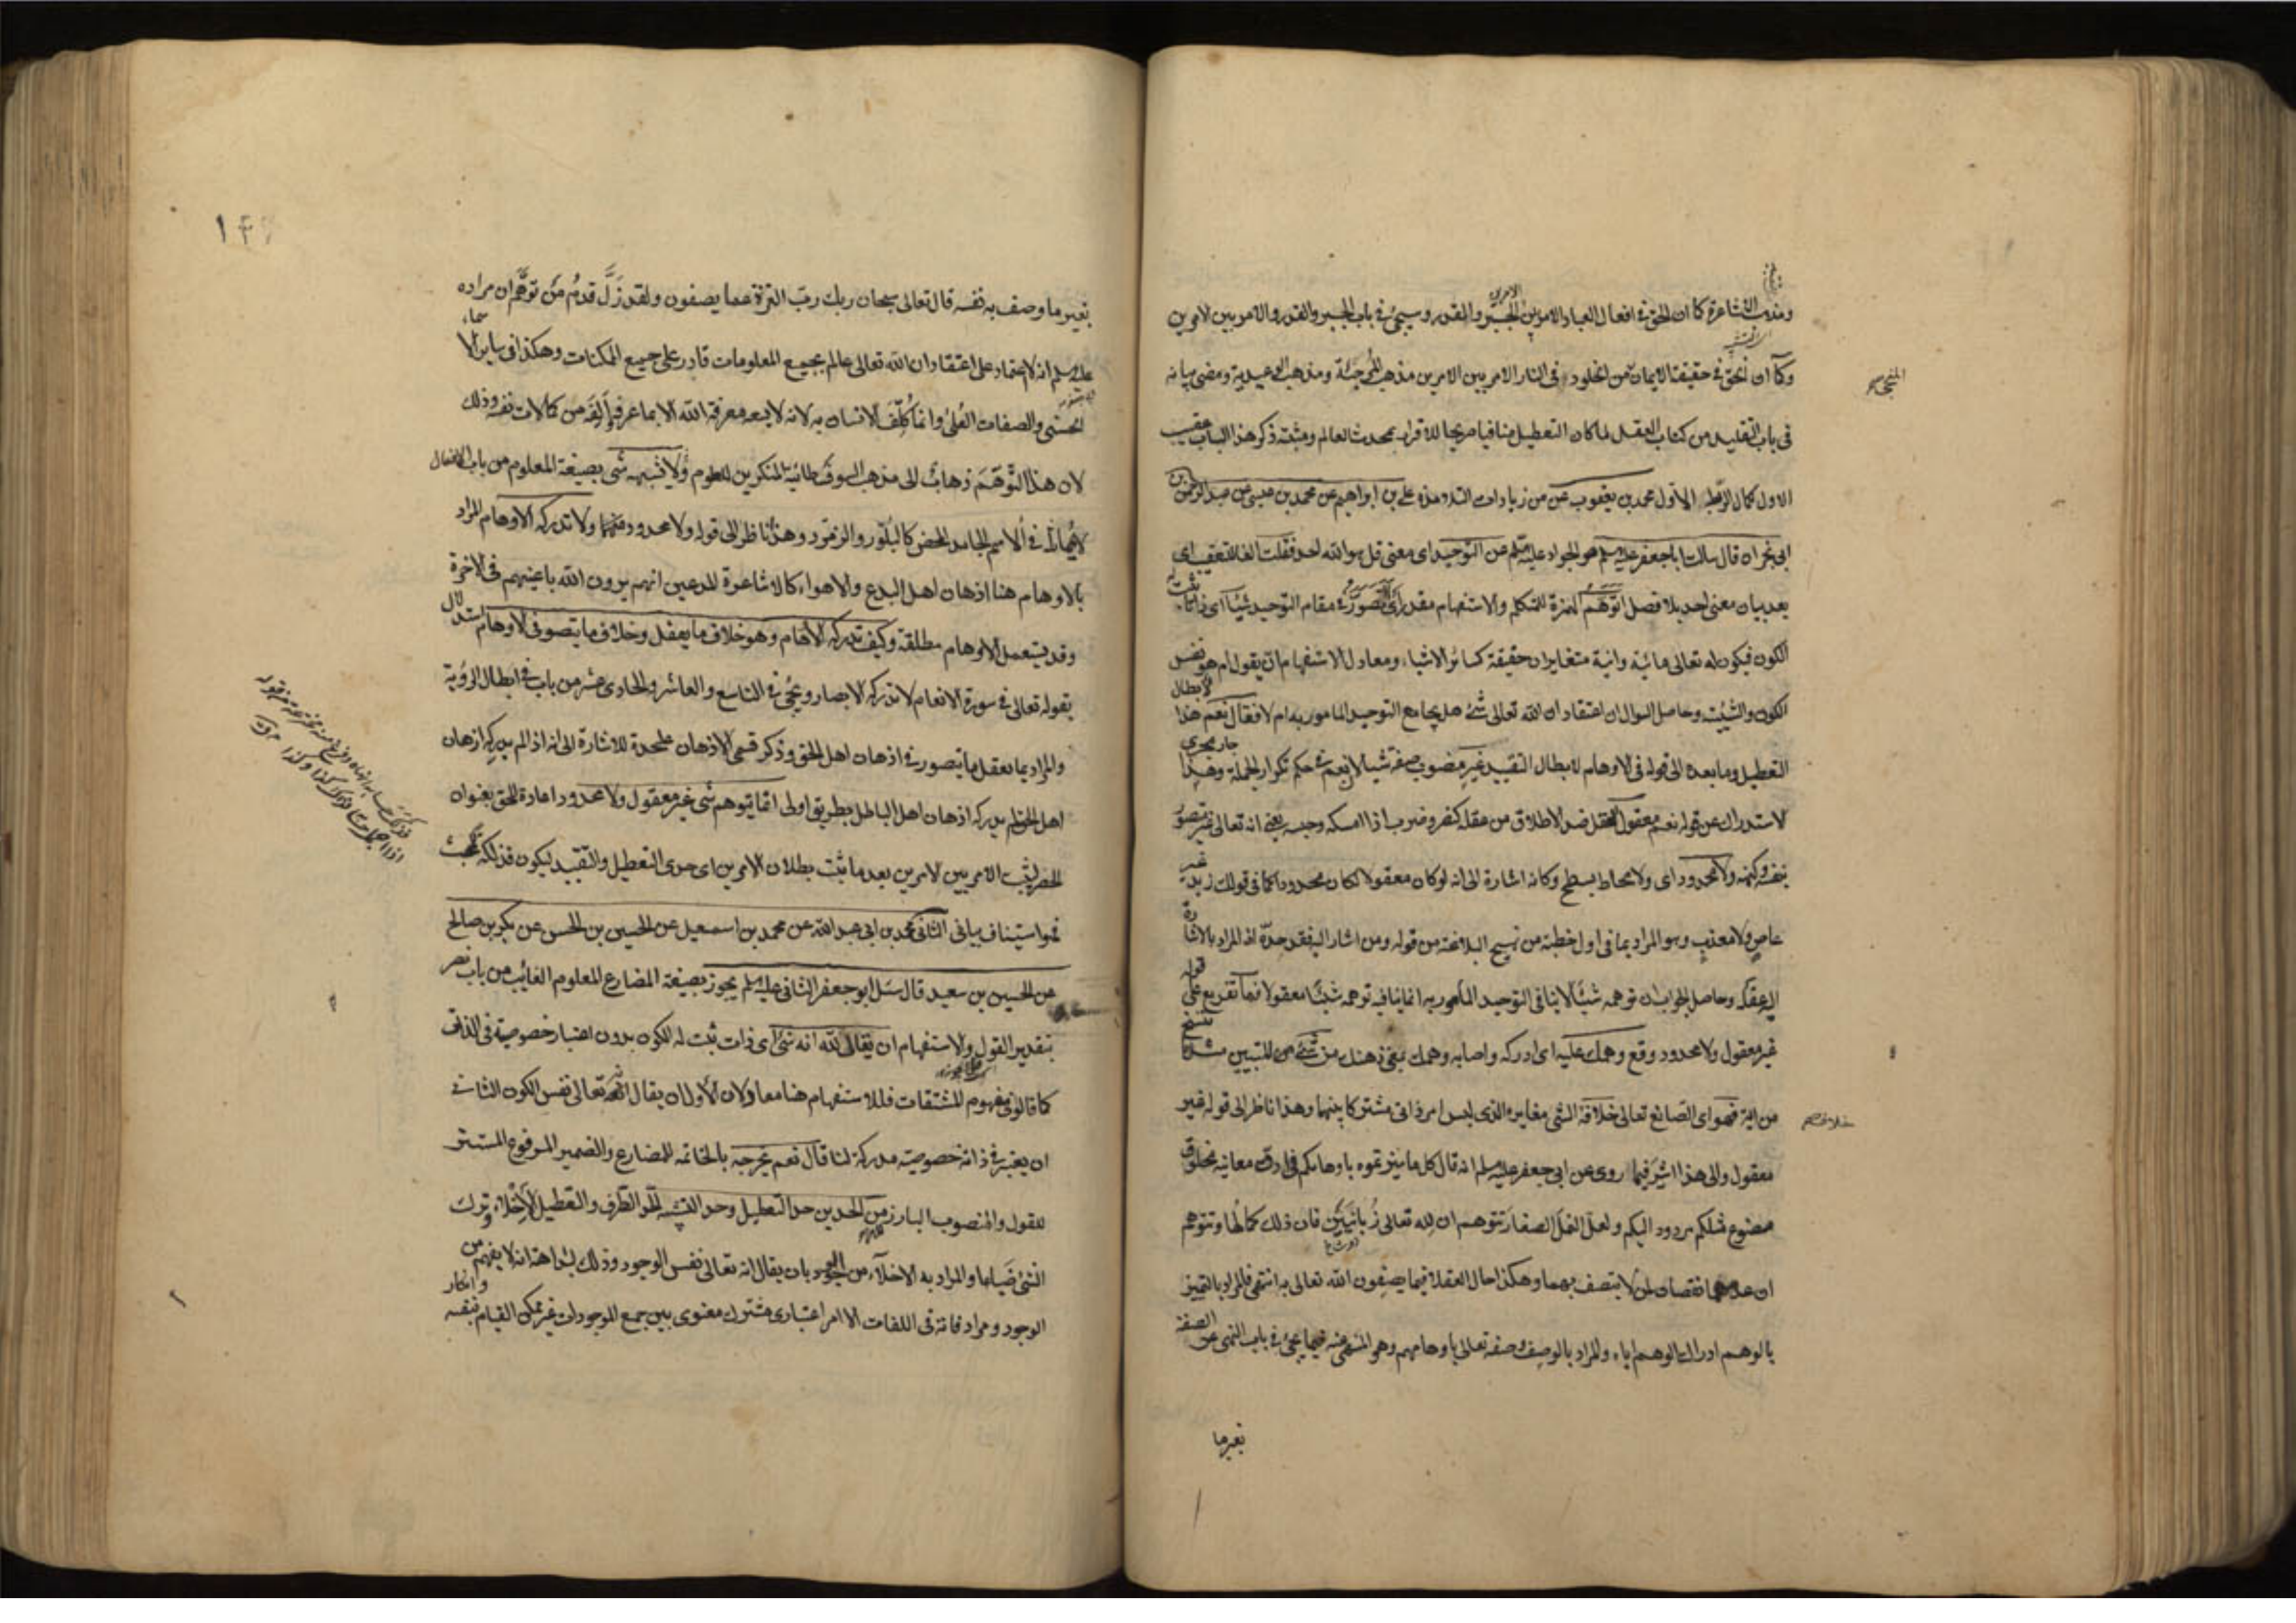 ومذهب الاشاعرة كما ان الحق في افعال العباد الامر بين الامرين الجبر والقدر وسيجئ في باب الجبر والقدر والامر بين الامرين
وكما ان الحق في حقيقة الايمان من الخلود في النار الامر بين الامرين مذهب المرجئة ومذهب الوعيدية ومضى بيانه
المنجي
في باب التقليد من كتاب العقل لما كان التعطيل منافيا صريحا للاقرار بمحدث العالم ومثبته ذكر هذا الباب عقيب
الاول كمال الربط الاول محمد بن يعقوب عن علي بن ابراهيم عن محمد بن عيسى عن عبد الرحمن بن
ابي نجران قال سالت ابا جعفر عليه السلم هو الجواد عليه السلم عن التوحيد اى معنى قل هو الله احد فقلت الفا للتعقيب اى
بعد بيان معنى احد بلا فصل اتوهم الهمزة للمتكلم والاستفهام مقدر اى اتصور في مقام التوحيد شيئا اى ذاتا ثبت له
الكون فيكون له تعالى مائية وانية متغايران حقيقة كسائر الاشياء ومعادل الاستفهام ان يقول ام هو نفس
الكون والشيئية وحاصل السوال ان اعتقاد ان الله تعالى شئ هل يجامع التوحيد المامور به ام لا فقال نعم هذا لابطال
التعطيل وما بعده الى قوله في الاوهام لابطال التقييد غير منصوب صفة شيئا لان نعم في حكم تكرار الجملة وهذا جار مجرى
الاستدراك عن قوله نعم معقول العقل ضد الاطلاق من عقله كنصر وضرب اذا امسكه وحبسه يعني انه تعالى غير متصور
بنفسه وكنهه ولا محدود اى ولا محاط بسطح وكانه اشارة الى انه لو كان معقولا لكان محدودا كما في قولك زيد غير
عاص ولا معذب وهو المراد بما في اول خطبة من نهج البلاغة من قوله ومن اشار اليه فقد حده اذ المراد بالاشارة
اليه عقله وحاصل الجواب ان توهمه شيئا لا ينافي التوحيد المأمور به انما ينافيه توهمه شيئا معقولا فما تفريع على قوله
غير معقول ولا محدود وقع وهمك عليه اى ادركه واصابه وهمك يعني ذهنك من شئ من للتبيين
من اية فهو اى الصانع تعالى خلافه الشئ مغايره الذى ليس امر ذاتي مشتركا بينهما وهذا ناظر الى قوله غير
خلافه
معقول والى هذا اشير فيما روى عن ابي جعفر عليه السلم انه قال كل ما ميزتموه باوهامكم في ادق معانيه مخلوق
مصنوع مثلكم مردود اليكم ولعل النمل الصغار تتوهم ان لله تعالى زبانيتين فان ذلك كمالها وتتوهم
ان عدمهما نقصان لمن لا يتصف بهما وهكذا حال العقلاء فيما يصفون الله تعالى به انتهى فالمراد بالتمييز
بالوهم ادراك الوهم اياه والمراد بالوصف وصفه تعالى باوهامهم وهو المنهي عنه فيما يجئ في باب النهي عن الصفة
بغير ما
بغير ما وصف به نفسه قال تعالى سبحان ربك رب العزة عما يصفون ولقد زل قدم من توهم ان مراده
عليه السلم انه لا اعتماد على اعتقاد ان الله تعالى عالم بجميع المعلومات قادر على جميع الممكنات وهكذا في ساير الاسماء
الحسنى والصفات العلى وانما كلف الانسان به لانه لا يسعه معرفة الله الا بما عرفه والفه من كمالات نفسه وذلك
لان هذا التوهم ذهاب الى مذهب السوفسطائية المنكرين للعلوم ولا يشبهه شئ بصيغة المعلوم من باب الافعال
لا يماثله في الاسم الجامد المحض كالبلور والزمرد وهذا ناظر الى قوله ولا محدود ولا تدركه الاوهام المراد
بالاوهام هنا اذهان اهل البدع والاهواء كالاشاعرة المدعين انهم يرون الله باعينهم في الاخرة
وقد يستعمل الاوهام مطلقة وكيف تدركه الاوهام وهو خلاف ما يعقل وخلاف ما يتصور في الاوهام استدلال
بقوله تعالى في سورة الانعام لا تدركه الابصار ويجئ في التاسع والعاشر والحادى عشر من باب في ابطال الرؤية
والمراد بما يعقل ما يتصور في اذهان اهل الحق وذكر قسمي الاذهان عليحدة للاشارة الى انه اذا لم يدركه اذهان
اهل الحق لم يدركه اذهان اهل الباطل بطريق اولى انما يتوهم شئ غير معقول ولا محدود اعادة للحق بعنوان
الحصر ليثبت الامر بين الامرين بعد ما ثبت بطلان الامرين اى حدى التعطيل والتقييد ليكون فذلكة للبحث
فهو استيناف بياني الثاني محمد بن ابي عبد الله عن محمد بن اسمعيل عن الحسين بن الحسن عن بكر بن صالح
عن الحسين بن سعيد قال سئل ابو جعفر الثاني عليه السلم يجوز بصيغة المضارع المعلوم الغائب من باب نصر
بتقدير القول والاستفهام ان يقال لله انه شئ اى ذات ثبت له الكون بدون اعتبار خصوصية في الذات
كما قالوا في مفهوم المشتقات فللاستفهام هنا معادلان الاول ان يقال انه تعالى نفس الكون الثاني
ان يعتبر في ذاته خصوصية مدركة لنا قال نعم يخرجه بالخاء للمضارع والضمير المرفوع المستتر
للقول والمنصوب البارز من الحدين حد التعطيل وحد التشبيه الحد الطرف والتعطيل الاخلاء وترك
الشئ ضياعا والمراد به الاخلاء من الوجود بان يقال انه تعالى نفس الوجود وذلك لبداهة انه لا يفهم من
الوجود ومرادفاته في اللغات الا امر اعتبارى مشترك معنوى بين جميع الموجودات غير ممكن القيام بنفسه وانكار